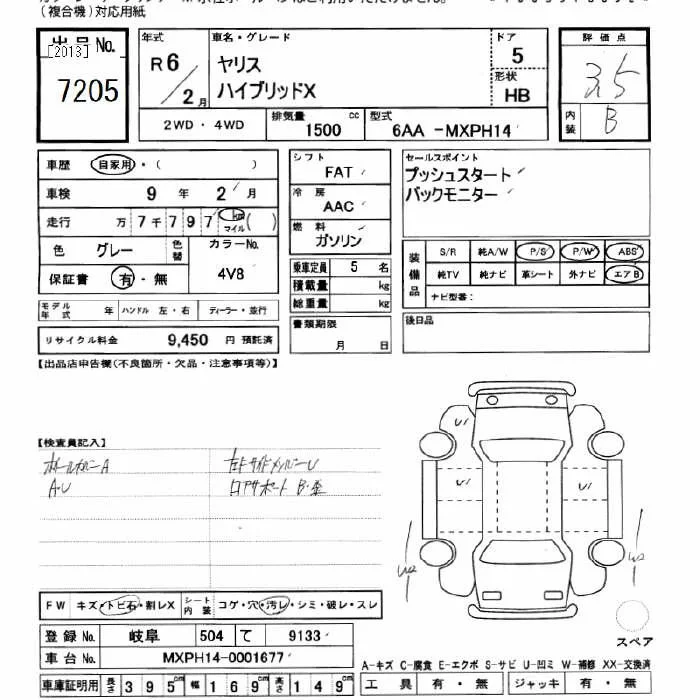 (複合機)対応用紙
出品 No.
[2013]
7205
年式
R6
/2月
車名・グレード
ヤリス
ハイブリッドX
ドア
5
形状
HB
2WD ・ 4WD
排気量
cc
1500
型式
6AA -MXPH14
評価点
3.5
内装
B
車歴 自家用・( )
車検 9 年 2 月
走行 万 7千 797 km マイル ( )
色 グレー 色替 カラーNo.
保証書 有・無 4V8
モデル年式 年 ハンドル 左・右 ディーラー・並行
リサイクル料金 9,450 円 預託済
シフト
FAT
冷房
AAC
燃料
ガソリン
乗車定員 5 名
積載量 kg
総重量 kg
書類期限
月 日
セールスポイント
プッシュスタート
バックモニター
装備品
S/R 純A/W P/S P/W ABS
純TV 純ナビ 革シート 外ナビ エアB
ナビ型番:
後日品
【出品店申告欄(不良箇所・欠品・注意事項等)】
【検査員記入】
A・U
左F サイドメンバーU
ロアサポート B・歪
FW キズ・トビ石・割レX シート内装 コゲ・穴・汚レ・シミ・破レ・スレ
登録 No. 岐阜 504 て 9133
車台 No. MXPH14-0001677
車庫証明用 長さ 395cm 幅 169cm 高さ 149cm
U1
U1
U1
スペア
A-キズ C-腐食 E-エクボ S-サビ U-凹ミ W-補修 XX-交換済
工具 有・無 ジャッキ 有・無